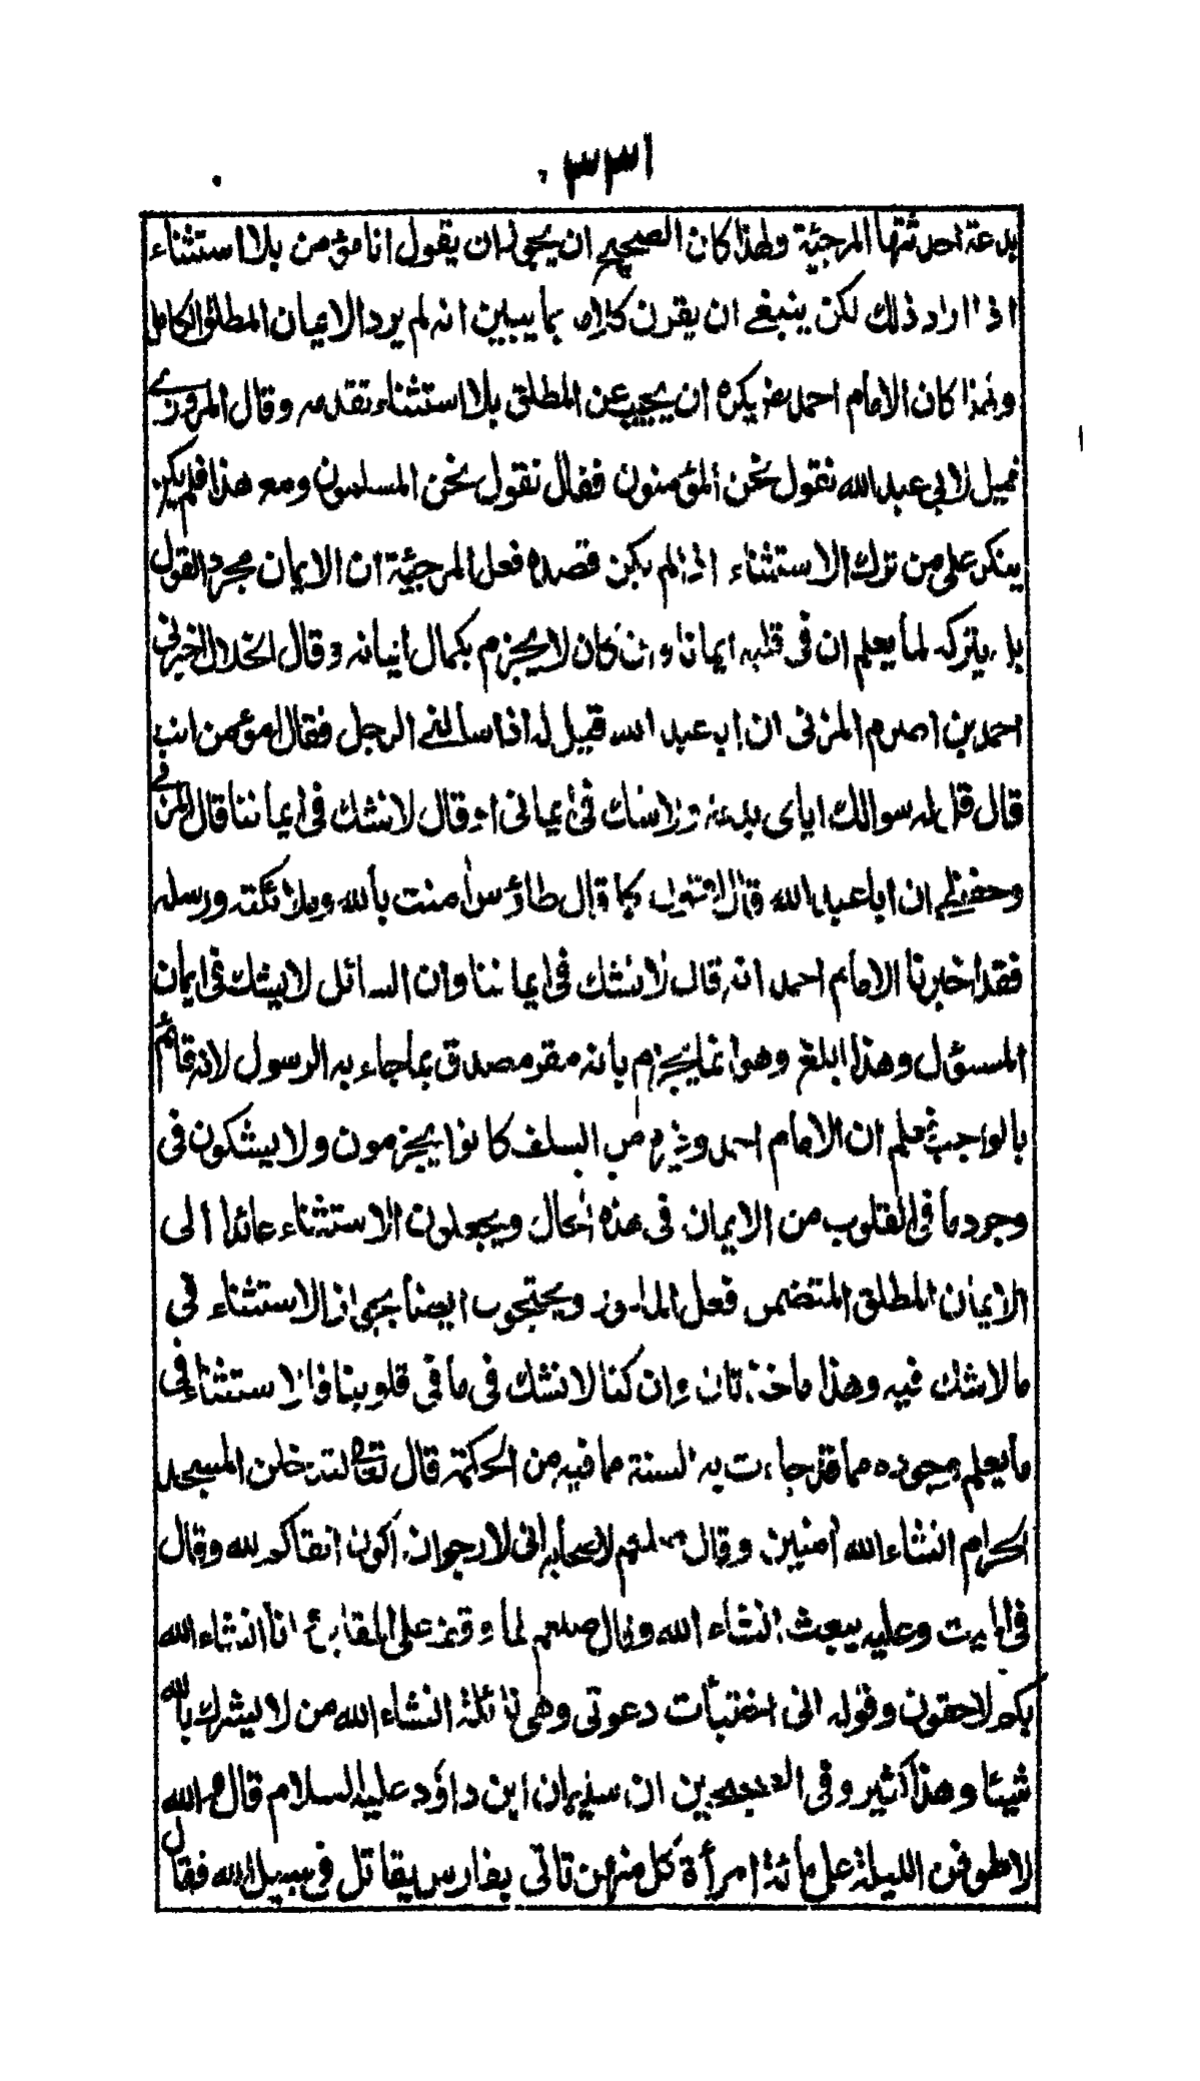 ٣٣١
بدعة احدثتها المرجئة ولهذا كان الصحيح ان يجوز له ان يقول انا مؤمن بلا استثناء
اذا اراد ذلك لكن ينبغي ان يقرن كلامه بما يبين انه لم يرد الايمان المطلق الكامل
ولهذا كان الامام احمد رضـ يكره ان يجيب عن المطلق بلا استثناء تقدمه وقال المروزي
قيل لابي عبد الله نقول نحن المؤمنون فقال نقول نحن المسلمون ومع هذا فلم يكن
ينكر على من ترك الاستثناء اذا لم يكن قصده فعل المرجئة ان الايمان مجرد القول
بل يتركه لما يعلم ان في قلبه ايمانا وان كان لا يجزم بكمال ايمانه وقال الخلال اخبرني
احمد بن اصرم المزني ان ابا عبد الله قيل له اذا سألني الرجل فقال امؤمن انت
قال قل له سوالك اياى بدعة ولا شك في ايماني او قال لا نشك في ايماننا قال المزني
وحفظي ان ابا عبد الله قال اقول كما قال طاؤس امنت بالله وملائكته ورسله
فقد اخبرنا الامام احمد انه قال لا نشك في ايماننا وان السائل لا يشك في ايمان
المسؤل وهذا ابلغ وهو انما يجزم بانه مقر مصدق بما جاء به الرسول لا انه قائم
بالواجب فعلم ان الامام احمد وغيره من السلف كانوا يجزمون ولا يشكون في
وجود ما في القلوب من الايمان في هذه الحال ويجعلون الاستثناء عائدا الى
الايمان المطلق المتضمن فعل المامور ويحتجون ايضا بجواز الاستثناء في
ما لا شك فيه وهذا ماخذ ثان وان كنا لا نشك في ما في قلوبنا فالاستثناء في
ما يعلم وجوده مما قد جاءت به السنة مما فيه من الحكمة قال تعالى لتدخلن المسجد
الحرام انشاء الله امنين وقال صلعم لاصحابه انى لارجو ان اكون اتقاكم لله وقال
في الميت وعليه يبعث انشاء الله وقال صلعم لما وقف على المقابر انا انشاء الله
بكم لاحقون وقوله انى اختبأت دعوتى وهى نائلة انشاء الله من لا يشرك بالله
شيئا وهذا كثير وفى الصحيحين ان سليمان ابن داؤد عليه السلام قال والله
لاطوفن الليلة على مائة امرأة كل منهن تاتى بفارس يقاتل في سبيل الله فقال